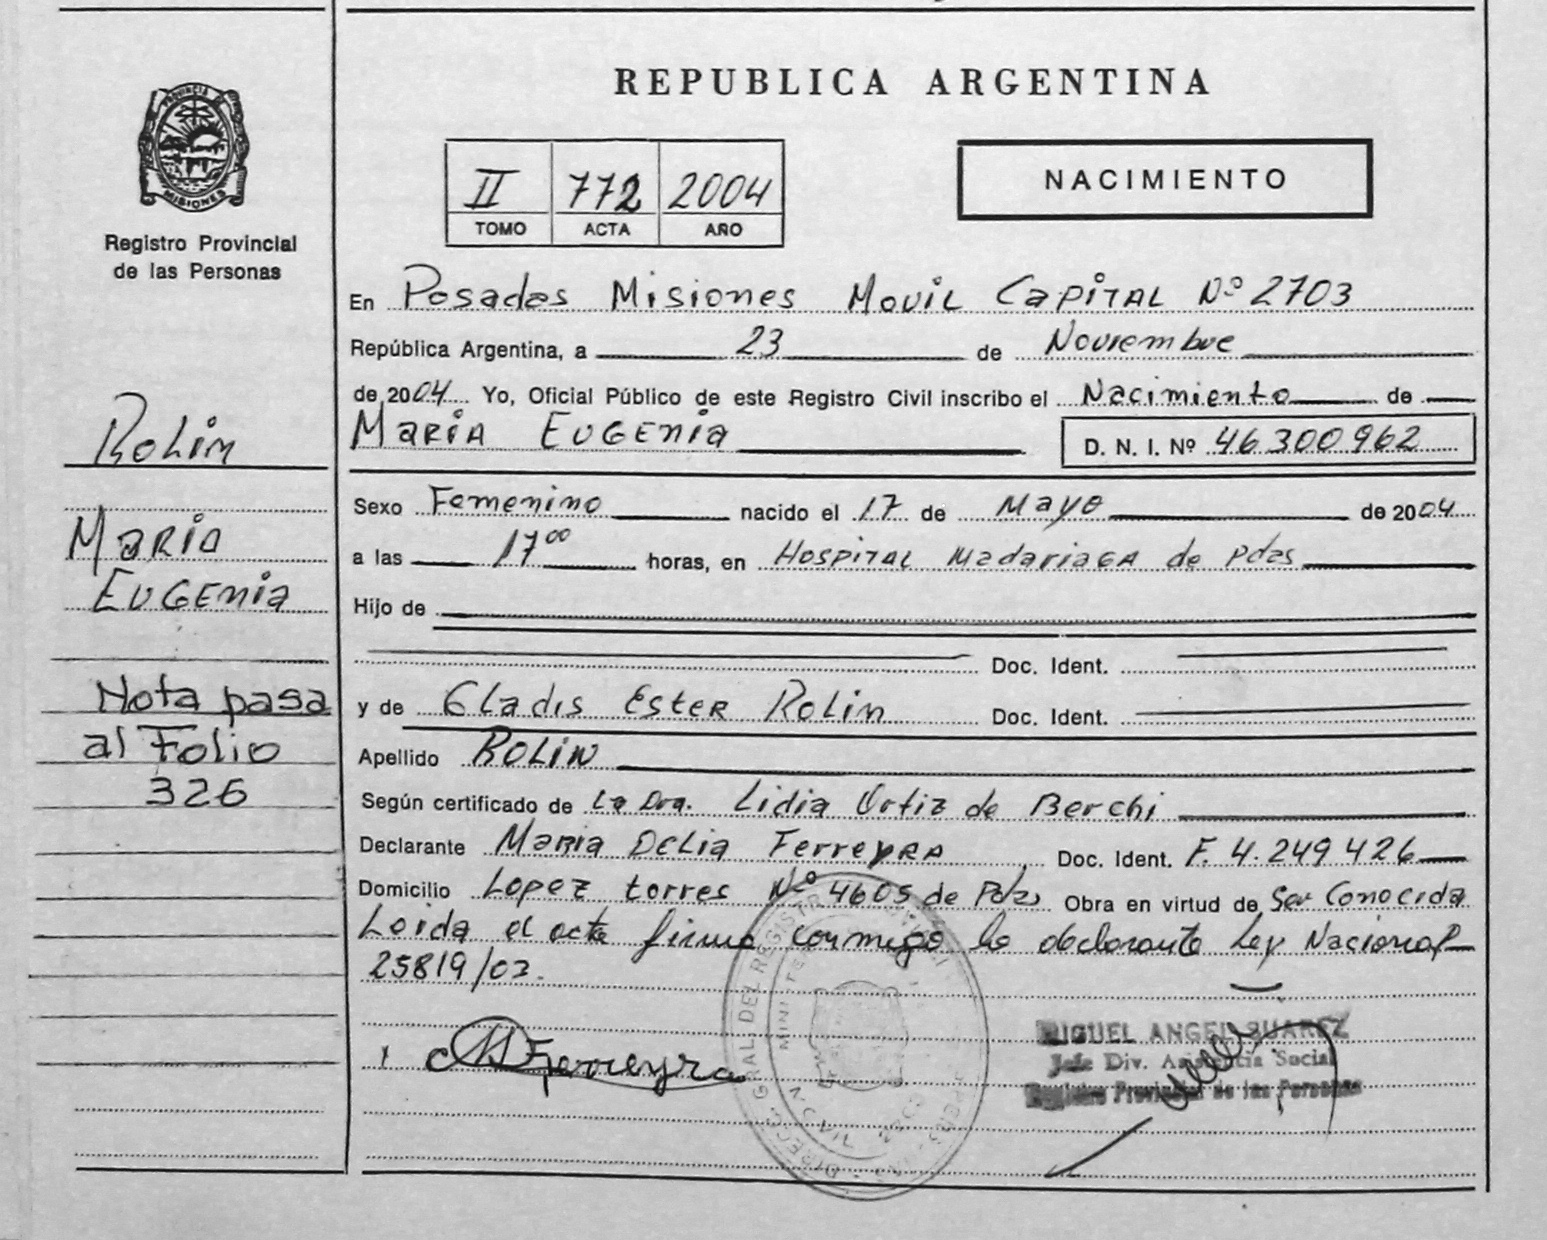 REPUBLICA ARGENTINA
PROVINCIA DE
MISIONES
Registro Provincial
de las Personas
II 772 2004
TOMO ACTA AÑO
NACIMIENTO
En Posadas Misiones Movil Capital Nº 2703
República Argentina, a 23 de Noviembre
de 2004 Yo, Oficial Público de este Registro Civil inscribo el Nacimiento de
Maria Eugenia D. N. I. Nº 46.300.962
Rolin
Maria
Eugenia
Nota pasa
al Folio
326
Sexo Femenino nacido el 17 de Mayo de 2004
a las 17⁰⁰ horas, en Hospital Madariaga de Pdas
Hijo de
Doc. Ident.
y de Gladis Ester Rolin Doc. Ident.
Apellido ROLIN
Según certificado de La Dra. Lidia Ortiz de Berchi
Declarante Maria Delia Ferreyra Doc. Ident. F. 4.249.426
Domicilio Lopez torres Nº 4605 de Pdas Obra en virtud de Ser Conocida
Leida el acta firma conmigo la declarante Ley Nacional
25819/03.
MFerreyra
MIGUEL ANGEL SUAREZ
Jefe Div. Asistencia Social
Registro Provincial de las Personas